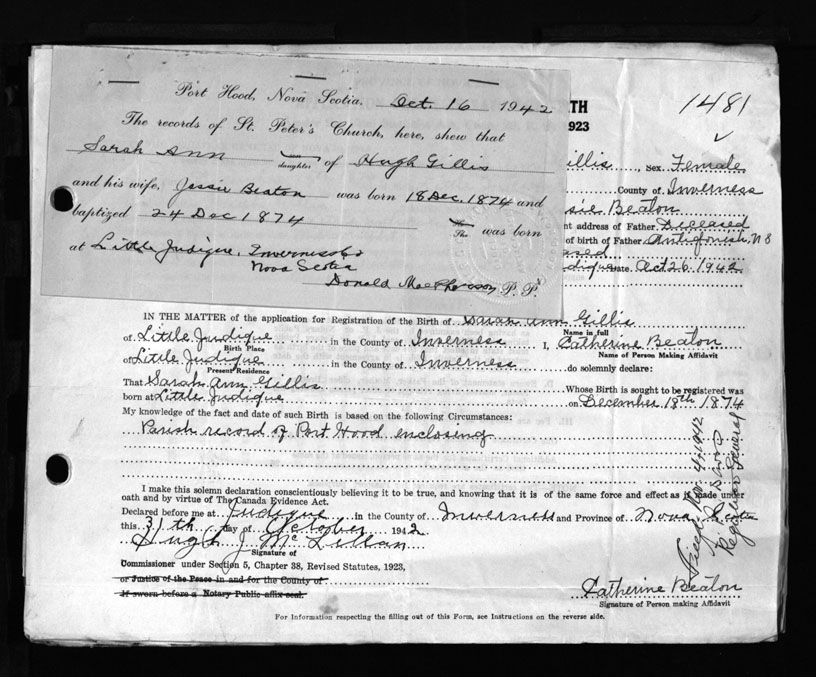 Port Hood, Nova Scotia, Oct. 16 1942
The records of St. Peter's Church, here, shew that
Sarah Ann daughter of Hugh Gillis
and his wife, Jessie Beaton was born 18 Dec. 1874 and
baptized 24 Dec 1874 She was born
at Little Judique, Inverness Co
Nova Scotia
Donald MacPherson, P. P.
TH
1923
1481
illis, Sex, Female
County of Inverness
sie Beaton
nt address of Father Deceased
of birth of Father Antigonish, N S
eased
dique Date Oct 26 1942
IN THE MATTER of the application for Registration of the Birth of Sarah Ann Gillis
Name in full
of Little Judique in the County of Inverness I, Catherine Beaton
Birth Place Name of Person Making Affidavit
of Little Judique in the County of Inverness do solemnly declare:
Present Residence
That Sarah Ann Gillis Whose Birth is sought to be registered was
born at Little Judique on December 18th 1874
My knowledge of the fact and date of such Birth is based on the following Circumstances:
Parish record of Port Hood enclosing
I make this solemn declaration conscientiously believing it to be true, and knowing that it is of the same force and effect as if made under
oath and by virtue of The Canada Evidence Act.
Declared before me at Judique in the County of Inverness and Province of Nova Scotia
this 31th day of October 1942
Hugh J. McLellan
Signature of
Commissioner under Section 5, Chapter 38, Revised Statutes, 1923,
or Justice of the Peace in and for the County of
If sworn before a Notary Public affix seal.
Catherine Beaton
Signature of Person making Affidavit
For Information respecting the filling out of this Form, see Instructions on the reverse side.
Nov 4, 1942
Registrar General